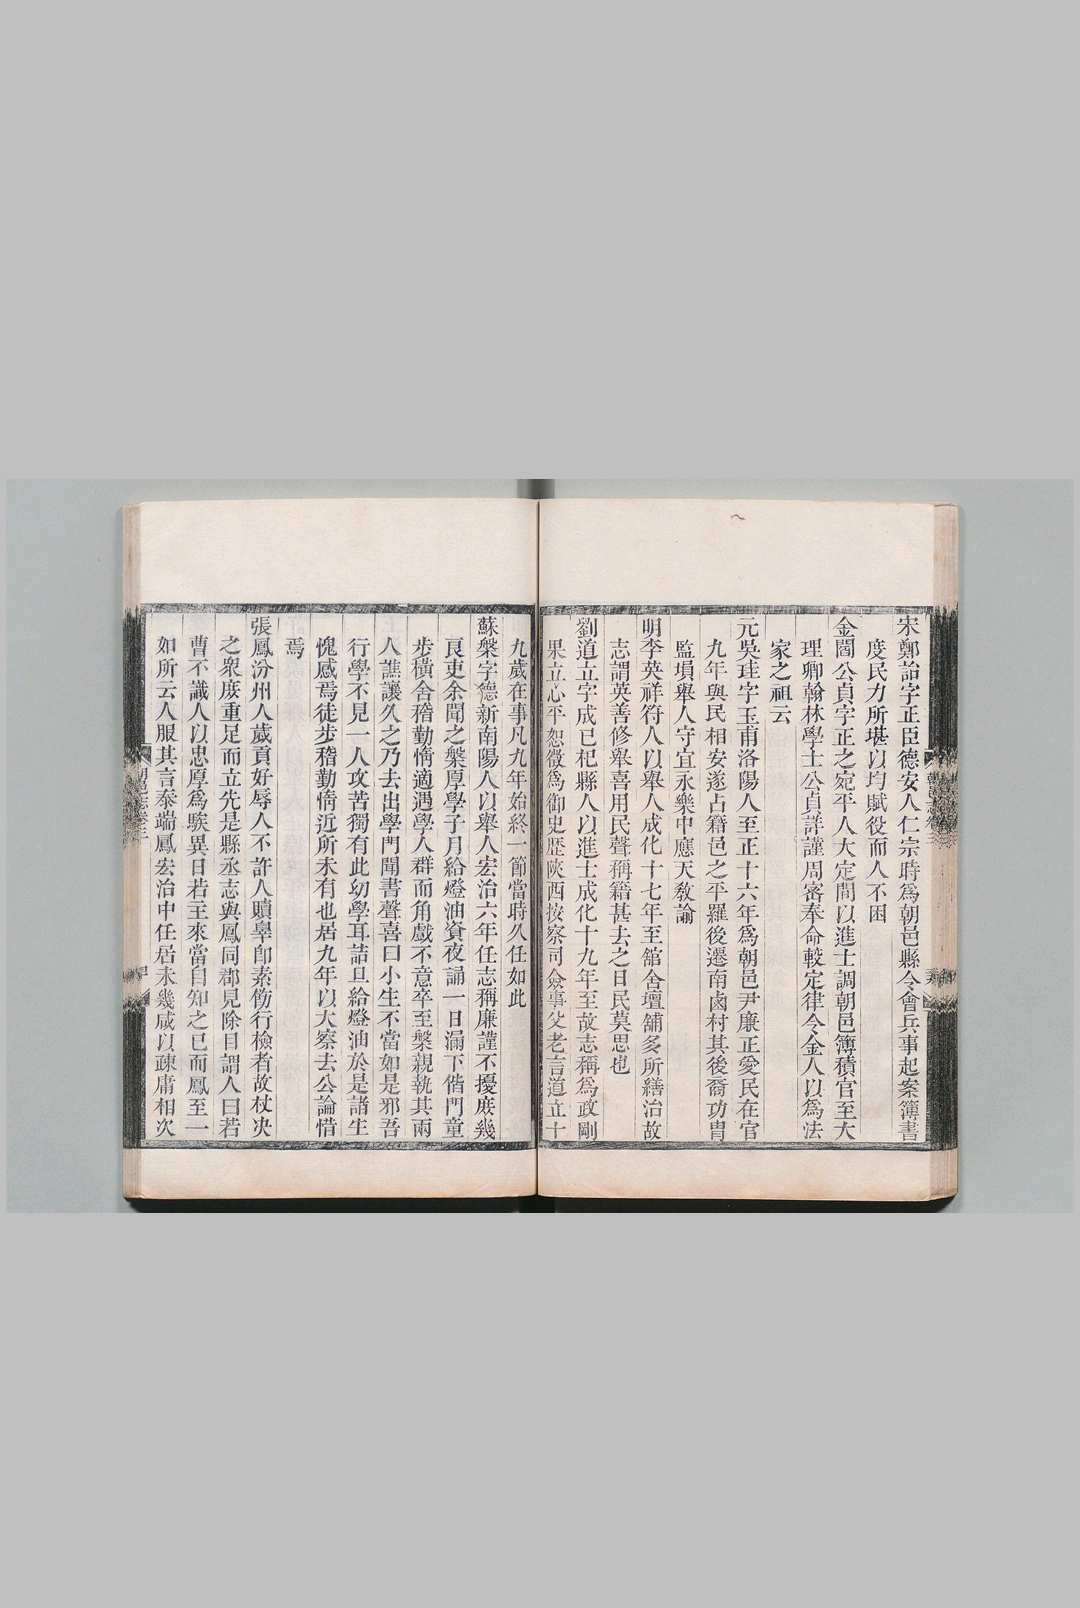 宋鄭詒字正臣德安人仁宗時爲朝邑縣令會兵事起案簿書
度民力所堪以均賦役而人不困
金閻公貞字正之宛平人大定間以進士調朝邑簿積官至大
理卿翰林學士公貞詳謹周審奉命較定律令金人以爲法
家之祖云
元吳珪字玉甫洛陽人至正十六年爲朝邑尹廉正愛民在官
九年與民相安遂占籍邑之平羅後遷南鹵村其後裔功胄
監塤舉人守宜永樂中應天敎諭
明李英祥符人以舉人成化十七年至舘舍壇舖多所繕治故
志謂英善修舉喜用民聲稱籍甚去之日民莫思也
劉道立字成已杞縣人以進士成化十九年至故志稱爲政剛
果立心平恕徵爲御史歷陜西按察司僉事父老言道立十
九歲在事凡九年始終一節當時久任如此
蘇槃字德新南陽人以舉人宏治六年任志稱廉謹不擾庶幾
良吏余聞之槃厚學子月給燈油資夜誦一日漏下偕門童
步橫舍稽勤惰適遇學人群而角戲不意卒至槃親執其兩
人譙讓久之乃去出學門聞書聲喜曰小生不當如是邪吾
行學不見一人攻苦獨有此幼學耳詰旦給燈油於是諸生
愧感焉徒步稽勤惰近所未有也居九年以大察去公論惜
焉
張鳳汾州人歲貢好辱人不許人贖辠卽素飭行檢者故杖决
之衆庶重足而立先是縣丞志與鳳同郡見除目謂人曰若
曹不識人以忠厚爲騃異日若主來當自知之已而鳳至一
如所云人服其言泰端鳳宏治中任居未幾咸以疎庸相次
朝邑志卷三